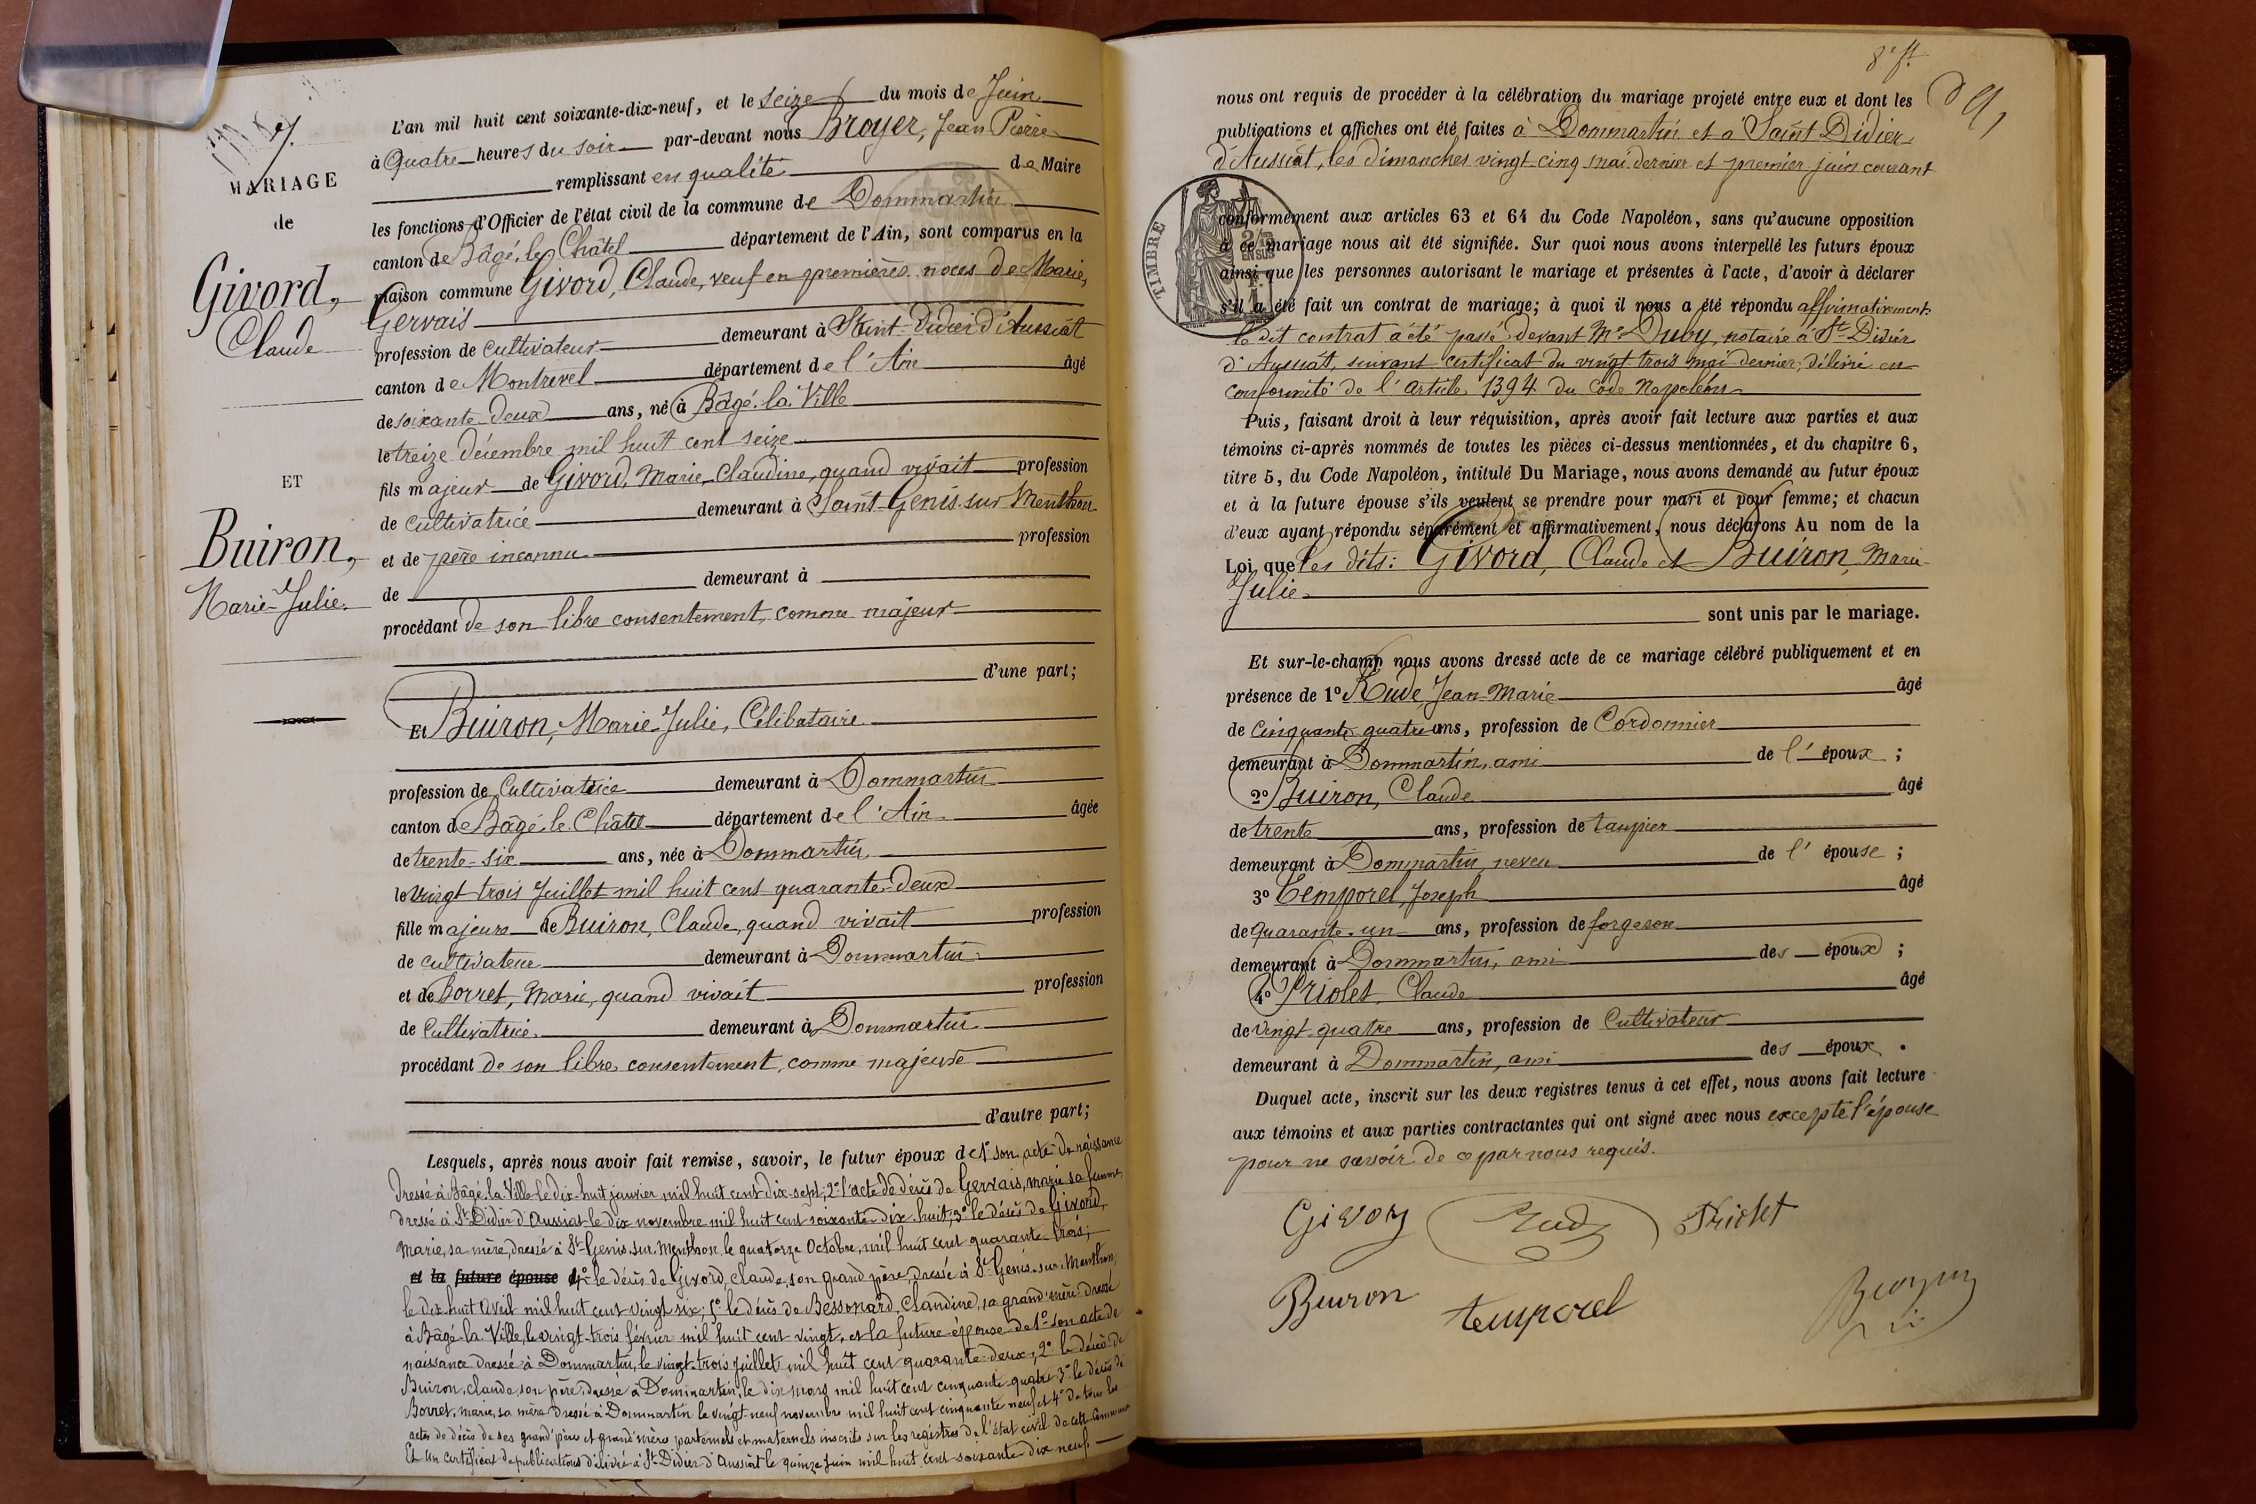 7.
MARIAGE
de
Givord,
Claude
ET
Buiron,
Marie-Julie.
L'an mil huit cent soixante-dix-neuf, et le seize du mois de Juin
à Quatre heures du soir par-devant nous Broyer, Jean Pierre
remplissant en qualité de Maire
les fonctions d'Officier de l'état civil de la commune de Dommartin
canton de Bâgé-le-Châtel département de l'Ain, sont comparus en la
maison commune Givord, Claude, veuf en premières noces de Marie,
Gervais
profession de cultivateur demeurant à Saint-Didier d'Aussiat
canton de Montrevel département de l'Ain âgé
de soixante-deux ans, né à Bâgé-la-Ville
le treize décembre mil huit cent seize
fils majeur de Givord, Marie-Claudine, quand vivait profession
de cultivatrice demeurant à Saint-Genis-sur Menthon
et de père inconnu profession
de demeurant à
procédant de son libre consentement, comme majeur
d'une part;
Et Buiron, Marie-Julie, Célibataire
profession de Cultivatrice demeurant à Dommartin
canton de Bâgé-le-Châtel département de l'Ain âgée
de trente-six ans, née à Dommartin
le vingt trois Juillet mil huit cent quarante-deux
fille majeure de Buiron, Claude, quand vivait profession
de cultivateur demeurant à Dommartin
et de Borret, Marie, quand vivait profession
de Cultivatrice demeurant à Dommartin
procédant de son libre consentement, comme majeure
d'autre part;
Lesquels, après nous avoir fait remise, savoir, le futur époux de 1° son acte de naissance
dressé à Bâgé-la-Ville le dix-huit janvier mil huit cent dix-sept; 2° l'acte de décès de Gervais, marie sa femme,
dressé à St Didier d'Aussiat le dix novembre mil huit cent soixante-dix-huit; 3° le décès de Givord,
Marie, sa mère, dressé à St Genis-sur-Menthon, le quatorze Octobre, mil huit cent quarante-trois;
et la future épouse 4° le décès de Givord, Claude, son grand père, dressé à St Genis-sur-Menthon,
le dix huit avril mil huit cent vingt six; 5° le décès de Bessonard, Claudine, sa grand'mère dressé
à Bâgé la Ville, le vingt-trois février mil huit cent vingt, et la future épouse de 1° son acte de
naissance dressé à Dommartin, le vingt-trois juillet mil huit cent quarante-deux, 2° le décès de
Buiron, claude son père, dressé à Dommartin, le dix mars mil huit cent cinquante-quatre 3° le décès de
Borret, marie, sa mère dressé à Dommartin le vingt-neuf novembre mil huit cent cinquante neuf et 4° de tous les
actes de décès de ses grand'pères et grand'mères paternels et maternels inscrits sur les registres de l'état civil de cette commune
Et un certificat de publications délivré à St Didier d'Aussiat le quinze Juin mil huit cent soixante dix neuf
8e ft.
nous ont requis de procéder à la célébration du mariage projeté entre eux et dont les
publications et affiches ont été faites à Dommartin et à Saint-Didier
d'Aussiat, les dimanches vingt-cinq mai dernier et premier juin courant
TIMBRE
2/10 EN SUS
conformément aux articles 63 et 64 du Code Napoléon, sans qu'aucune opposition
à ce mariage nous ait été signifiée. Sur quoi nous avons interpellé les futurs époux
ainsi que les personnes autorisant le mariage et présentes à l'acte, d'avoir à déclarer
s'il a été fait un contrat de mariage; à quoi il nous a été répondu affirmativement.
le dit contrat a été passé devant Me Duby, notaire à St-Didier
d'Aussiat, suivant certificat du vingt trois mai dernier, délivré en
conformité de l'article 1394 du Code Napoléon
Puis, faisant droit à leur réquisition, après avoir fait lecture aux parties et aux
témoins ci-après nommés de toutes les pièces ci-dessus mentionnées, et du chapitre 6,
titre 5, du Code Napoléon, intitulé Du Mariage, nous avons demandé au futur époux
et à la future épouse s'ils veulent se prendre pour mari et pour femme; et chacun
d'eux ayant répondu séparément et affirmativement, nous déclarons Au nom de la
Loi que les dits: Givord, Claude et Buiron, Marie
Julie
sont unis par le mariage.
Et sur-le-champ nous avons dressé acte de ce mariage célébré publiquement et en
présence de 1° Rude, Jean-Marie âgé
de Cinquante quatre ans, profession de Cordonnier
demeurant à Dommartin, ami de l' époux ;
2° Buiron, Claude âgé
de trente ans, profession de taupier
demeurant à Dommartin, neveu de l' épouse ;
3° Temporel, Joseph âgé
de quarante-un ans, profession de forgeron
demeurant à Dommartin, ami des époux ;
4° Friolet, Claude âgé
de vingt quatre ans, profession de Cultivateur
demeurant à Dommartin, ami des époux .
Duquel acte, inscrit sur les deux registres tenus à cet effet, nous avons fait lecture
aux témoins et aux parties contractantes qui ont signé avec nous excepté l'épouse
pour ne savoir de ce par nous requis.
Givord Rude Friolet
Buiron temporel Broyer